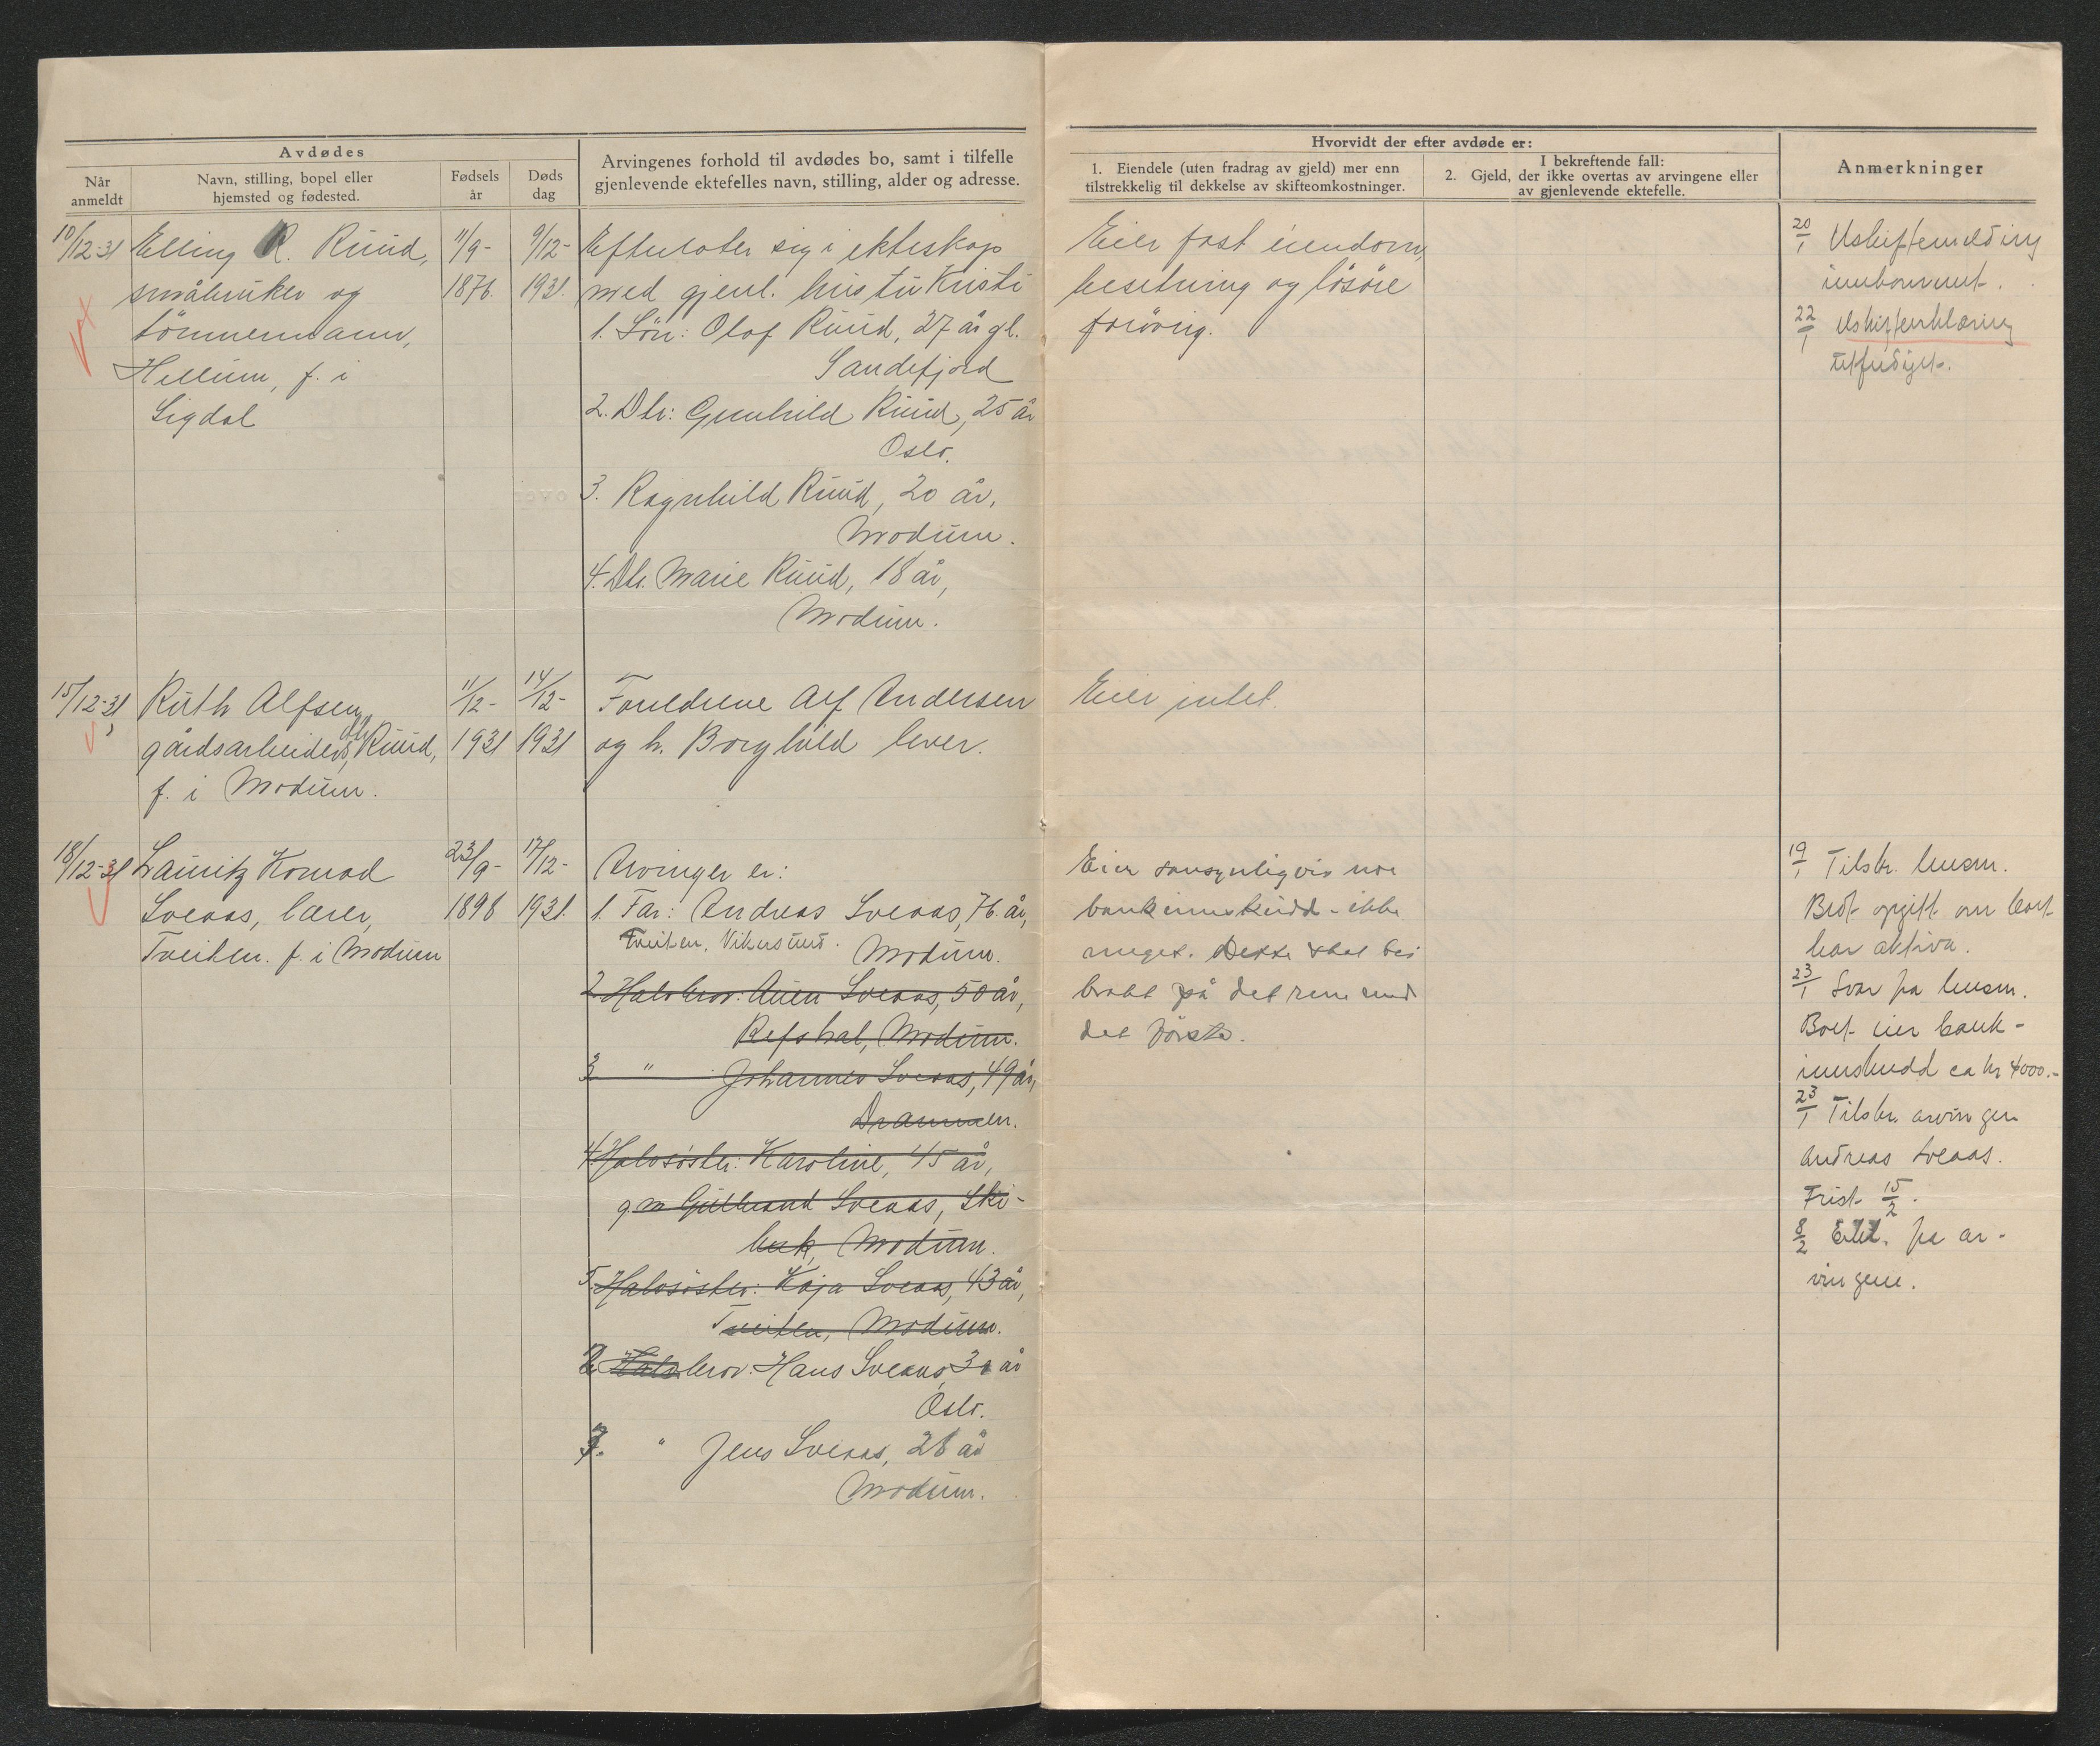 Avdødes
Når
anmeldt
Navn, stilling, bopel eller
hjemsted og fødested.
Fødsels
år
Døds
dag
Arvingenes forhold til avdødes bo, samt i tilfelle
gjenlevende ektefelles navn, stilling, alder og adresse.
Hvorvidt der efter avdøde er:
1. Eiendele (uten fradrag av gjeld) mer enn
tilstrekkelig til dekkelse av skifteomkostninger.
I bekreftende fall:
2. Gjeld, der ikke overtas av arvingene eller
av gjenlevende ektefelle.
Anmerkninger
10/12-31
Elling R. Ruud,
småbruker og
tömmermann,
Hellum, f. i
Sigdal
11/9-
1876.
9/12-
1931.
Efterlater sig i ekteskap
med gjenl. hustru Kristi
1. Sön: Olaf Ruud, 27 år gl.
Sandefjord
2. Dtr: Gunhild Ruud, 25 år
Oslo.
3. Ragnhild Ruud, 20 år,
Modum.
4. Dtr. Marie Ruud, 18 år,
Modum.
Eier fast eiendom,
besetning og lösöre
forövrig.
20/1 Uskiftemelding
innkommet.
22/1 Uskifteerklæring
utferdiget.
15/12-31
Ruth Alfsen,
gårdsarbeiders dtr, Ruud,
f. i Modum.
11/12-
1931
14/12-
1931
Foreldrene Alf Andersen
og h. Borghild lever.
Eier intet.
18/12-31
Lauritz Konrad
Sveaas, lærer,
Tveiten. f. i Modum
23/9-
1898
17/12-
1931.
Arvinger er:
1. Far: Andreas Sveaas, 76 år,
Tveiten, Vikersund. Modum.
2. Halvbror: Auen Sveaas, 50 år,
Refshal, Modum.
3 " Johannes Sveaas, 49 år,
Drammen.
4. Halvsöster: Karoline, 45 år,
g. m. Gulbrand Sveaas, Ski-
bek, Modum.
5. Halvsöster: Kaja Sveaas, 43 år,
Tveiten, Modum.
2. Halvbror: Hans Sveaas, 30 år
Oslo.
3. " Jens Sveaas, 28 år
Modum.
Eier sansynligvis noe
bankinnskudd - ikke
meget. Dette skal bli
brakt på det rene med
det förste.
19/1 Tilskr. lensm.
Bedt opgitt om boet
har aktiva.
23/1 Svar fra lensm.
Boet eier bank-
innskudd ca kr 4000.-
23/1 Tilskr. arvingen
Andreas Sveaas.
Frist 15/2.
8/2 Erkl. fra ar-
vingene.